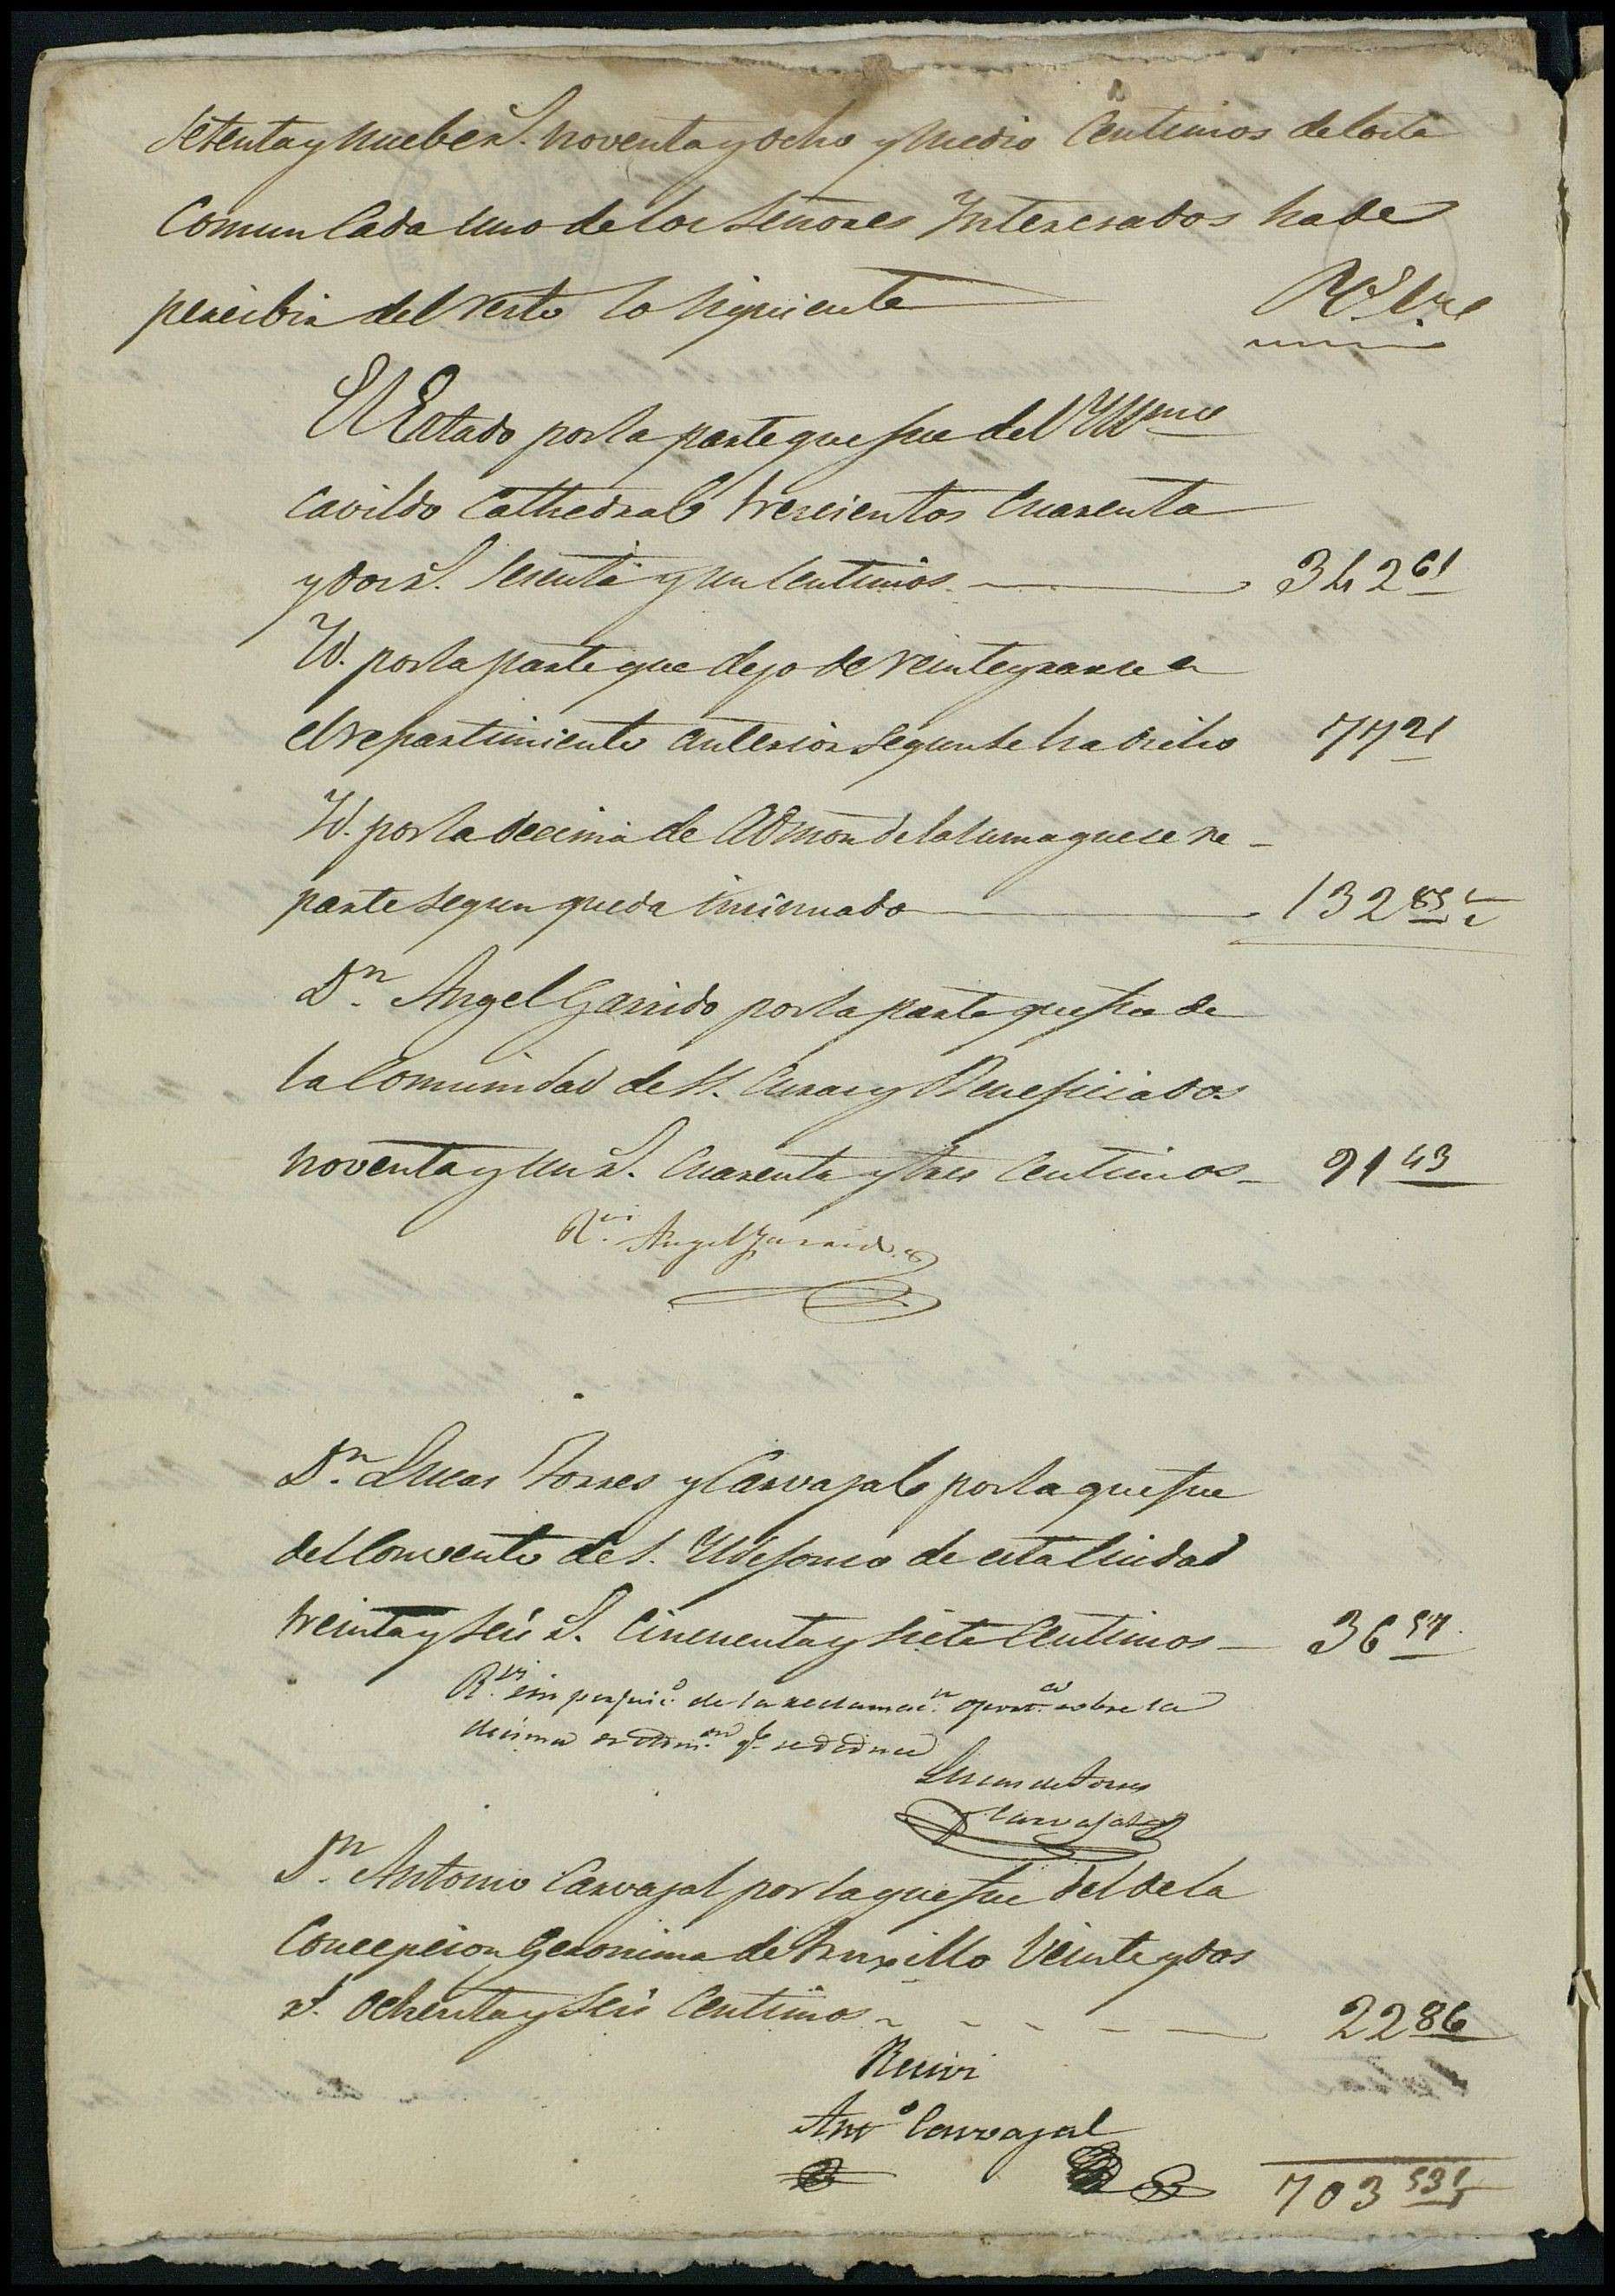 Setenta y nueve rs. noventa y ocho y medio Centimos de lo de la
Comun Cada uno de los Señores Interesados ha de
percibir del resto lo siguiente Rs. Cs.
El Estado por la parte que fue del Yllmo
Cavildo Cathedral trescientos Cuarenta
y dos rs. sesenta y un Centimos 342 61
Yd. por la parte que dejo de reintegrarse en
el repartimiento anterior segun se ha dicho 77 21
Yd. por la decima de Admon de la suma que se re-
parte segun queda insinuado 132 85
Dn. Angel Garrido por la parte que fue de
la Comunidad de SS. Curas y Beneficiados
noventa y un rs. Cuarenta y tres Centimos 91 43
Rvi. Angel Garrido
Dn. Lucas Torres y Carvajal por la que fue
del Convento de S. Yldefonso de esta Ciudad
treinta y seis rs. Cincuenta y siete Centimos 36 57
R.vi sin perjuic.o de la reclamac.n oport.a sobre la
decima de Adm.on q.e se deduce
Lucas de Torres
Carvajal
Dn. Antonio Carvajal por la que fue del de la
Concepcion Geronima de Truxillo Veinte y dos
rs. ochenta y seis Centimos 22 86
Recivi
Anto. Carvajal
703 53